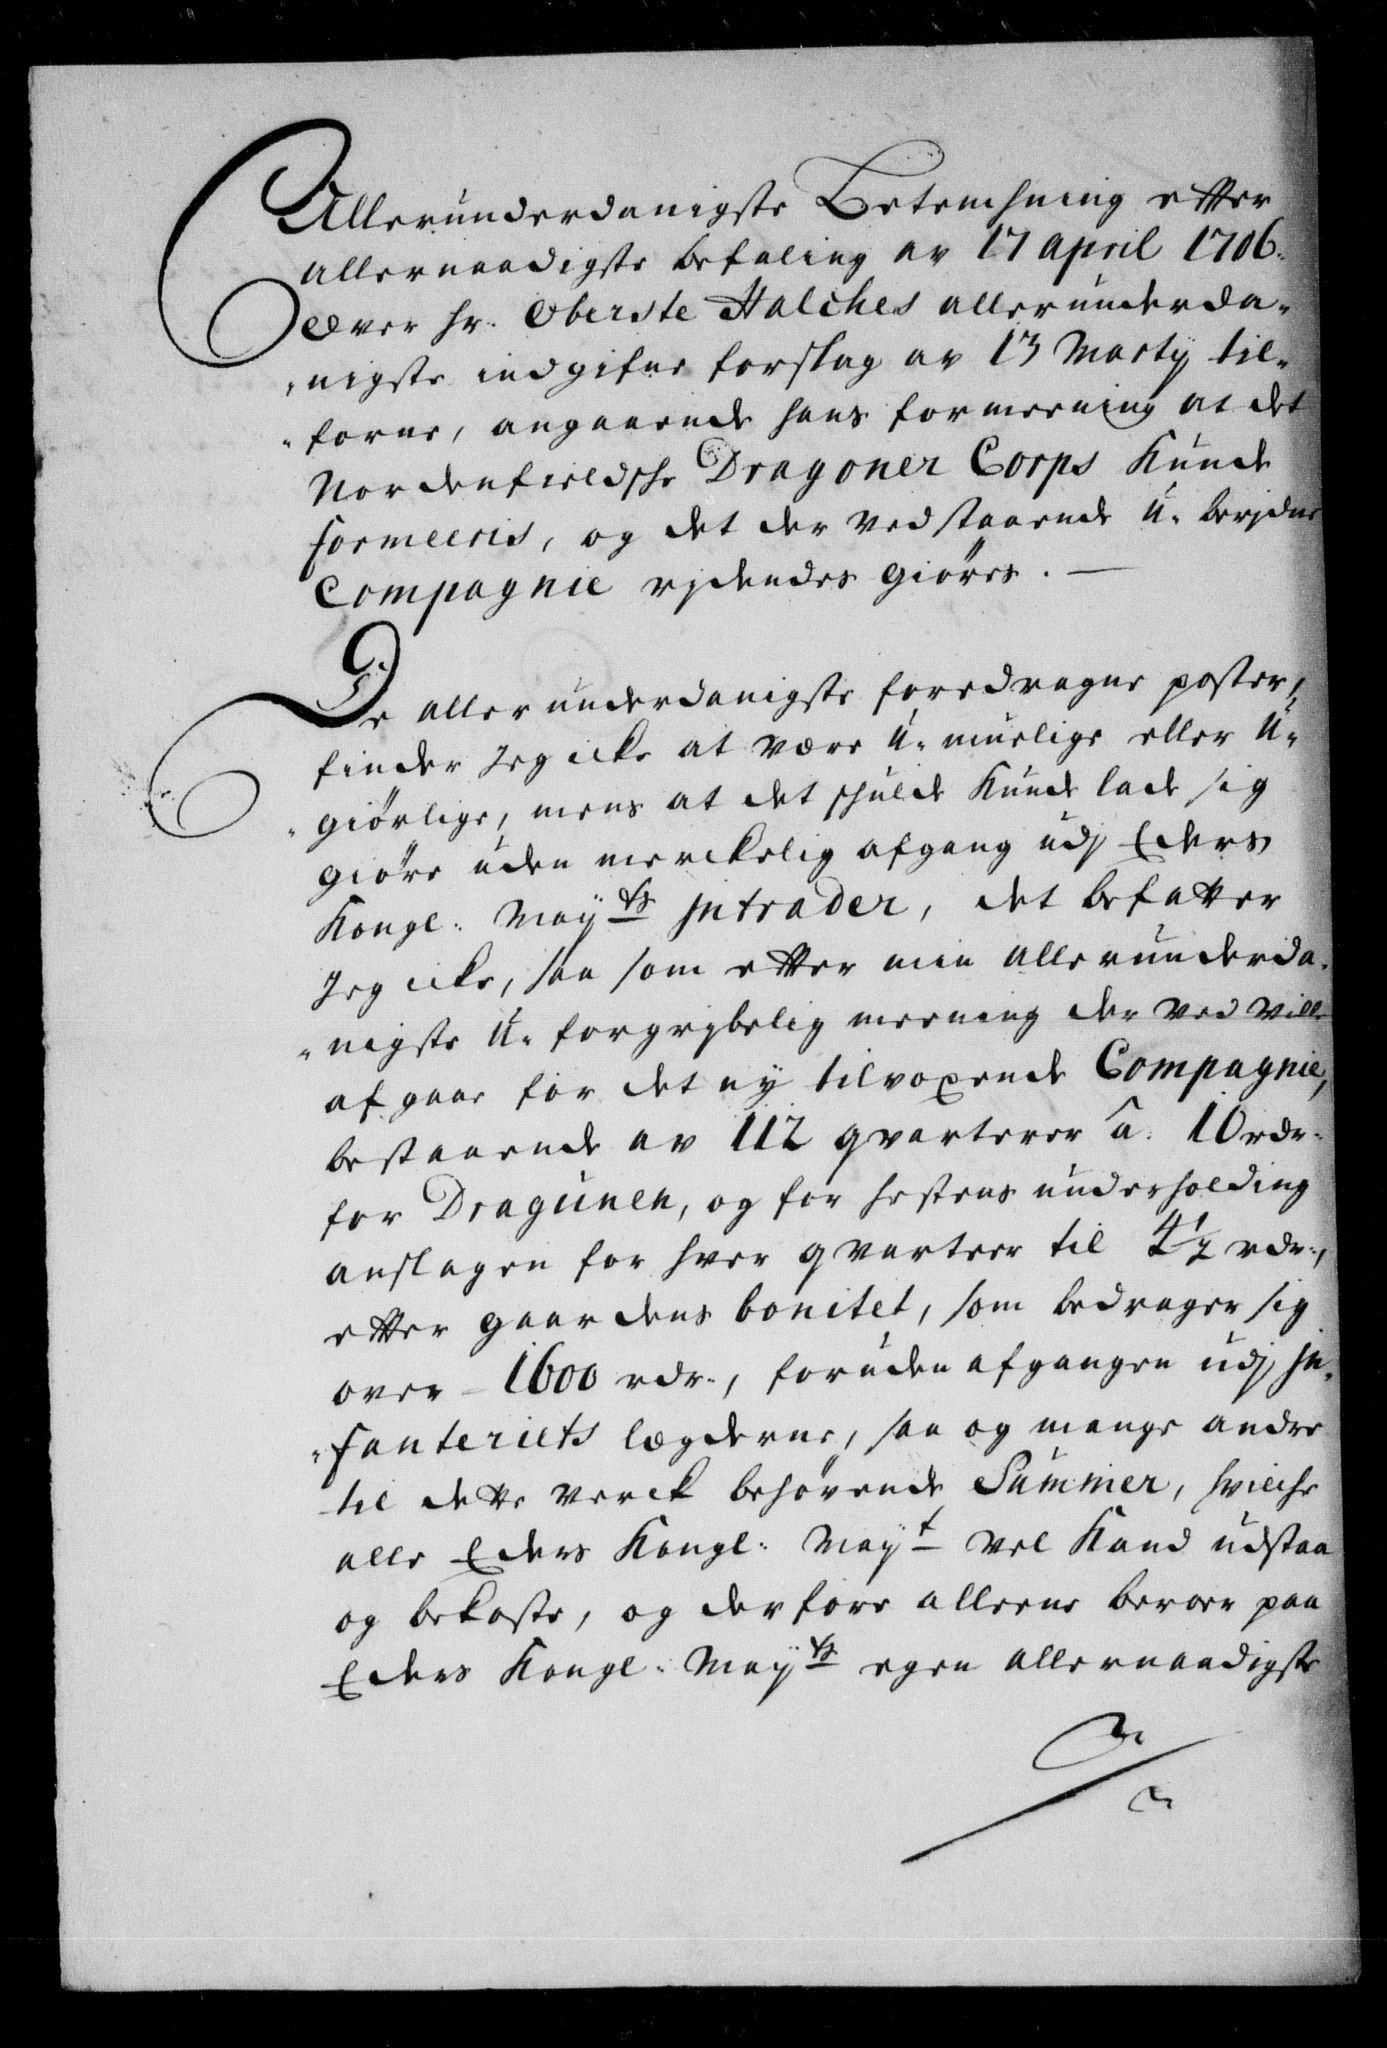 Allerunderdanigste Betenchning etter
allernaadigste befaling av 17 april 1706.
over hr. Oberste Halches allerunderda-
nigste indgifne forslag av 13 Marty til-
forne, angaaende hans formeening at det
Nordenfieldsche Dragoner Corps Kunde
formeeris, og det der ved staaende U-berjdne
Compagnie rjdendes giöres. —
De allerunderdanigste foredragne poster,
finder Jeg icke at være U-muelige eller U-
giörlige, mens at det schulde Kunde lade sig
giöre uden merckelig afgang udj Eders
Kongl: Mayts Jntrader, det befatter
Jeg icke, saa som etter min allerunderda-
nigste U-forgrjbelig meening der ved ville
afgaae for det ny tilvoxende Compagnie,
bestaaende av 112 qvarterer â. 10 rdr.
for Dragunen, og for hestens underholding
anslagen for hver qvarteer til 4½ rdr.,
etter gaardens bonitet, som bedrager sig
over 1600 rdr., foruden afgangen udj Jn-
fanteriets lægderne, saa og mange andre
til dette verck behövende Summer, hvilche
alle Eders Kongl: Mayt vel Kand udstaa
og bekoste, og derfore alleene beroer paa
Eders Kongl: Mayts egen allernaadigste